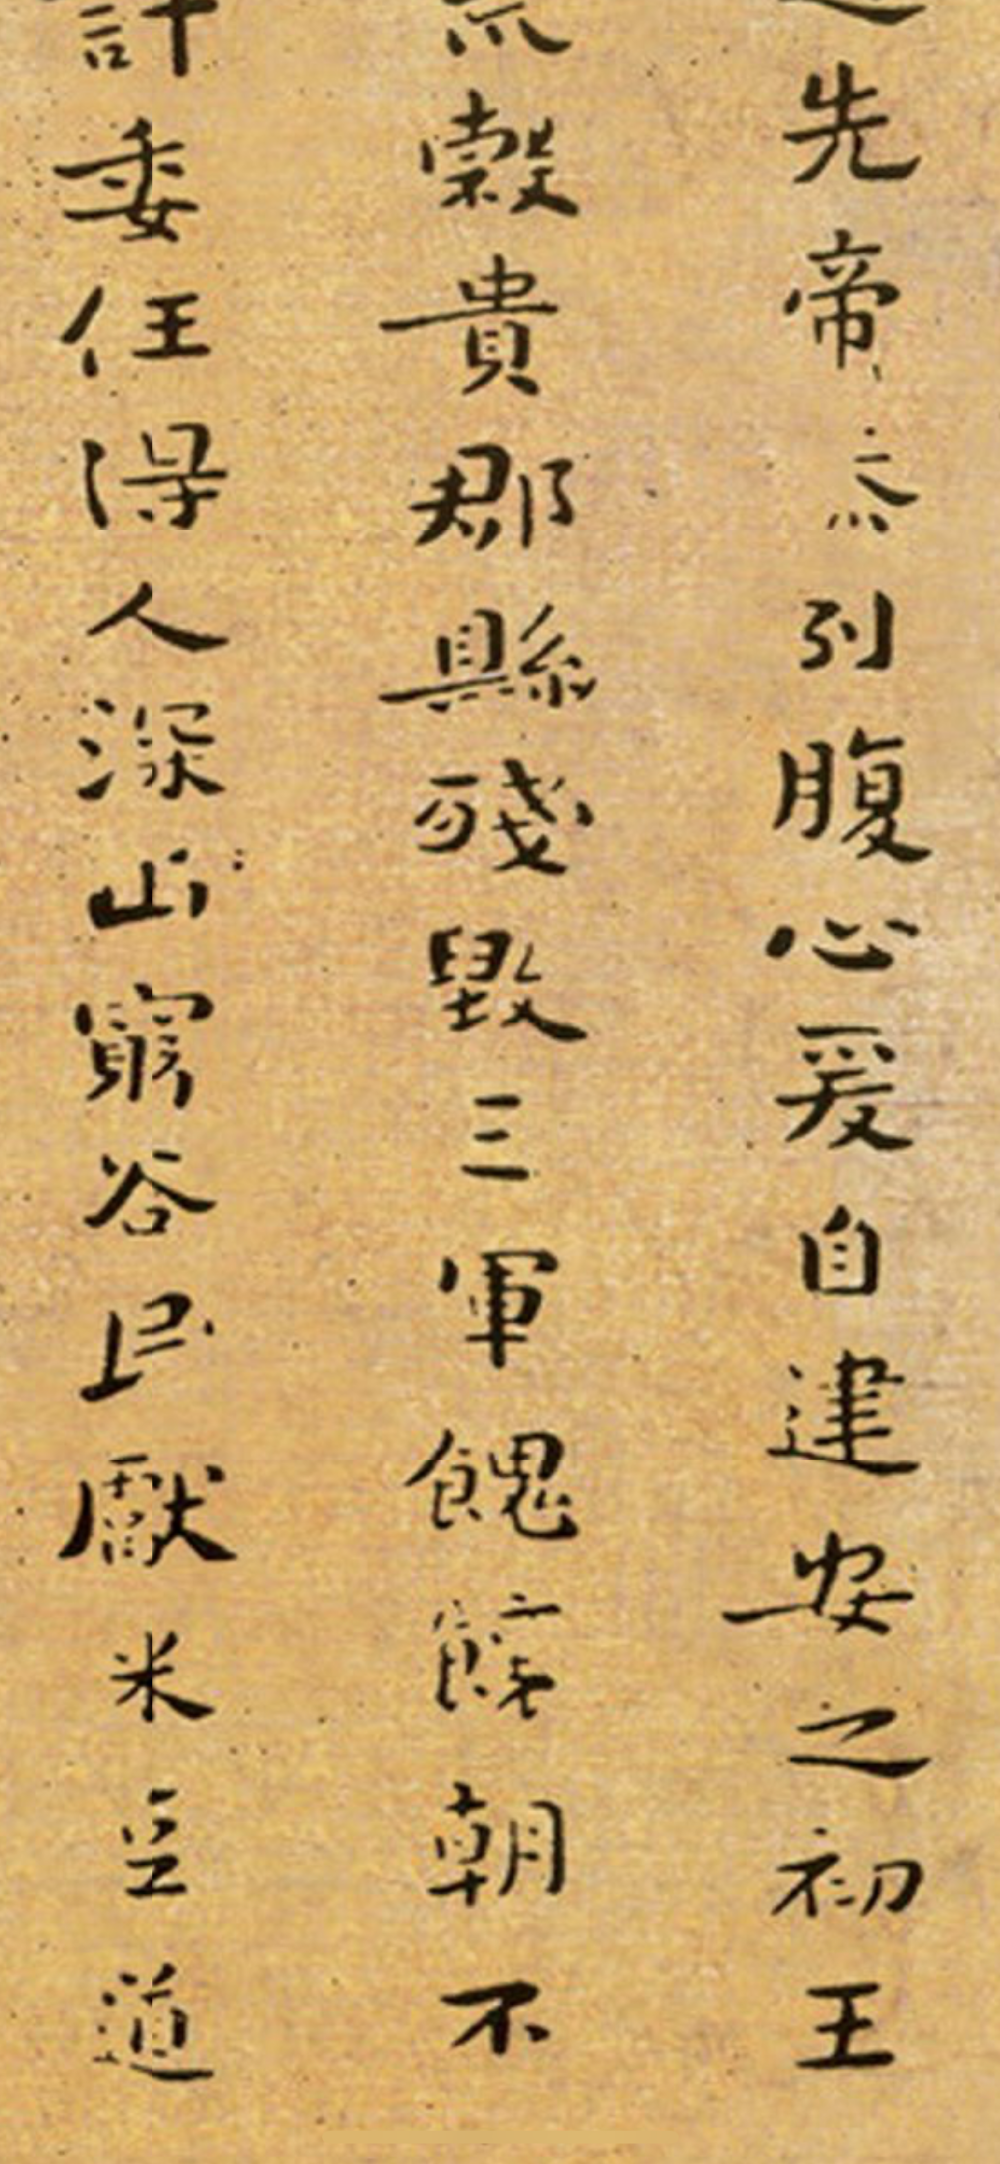 先帝忝列腹心爰自建安之初王
荒穀貴郡縣殘毀三軍餽饟朝不
計委任得人深山窮谷民獻米豆道